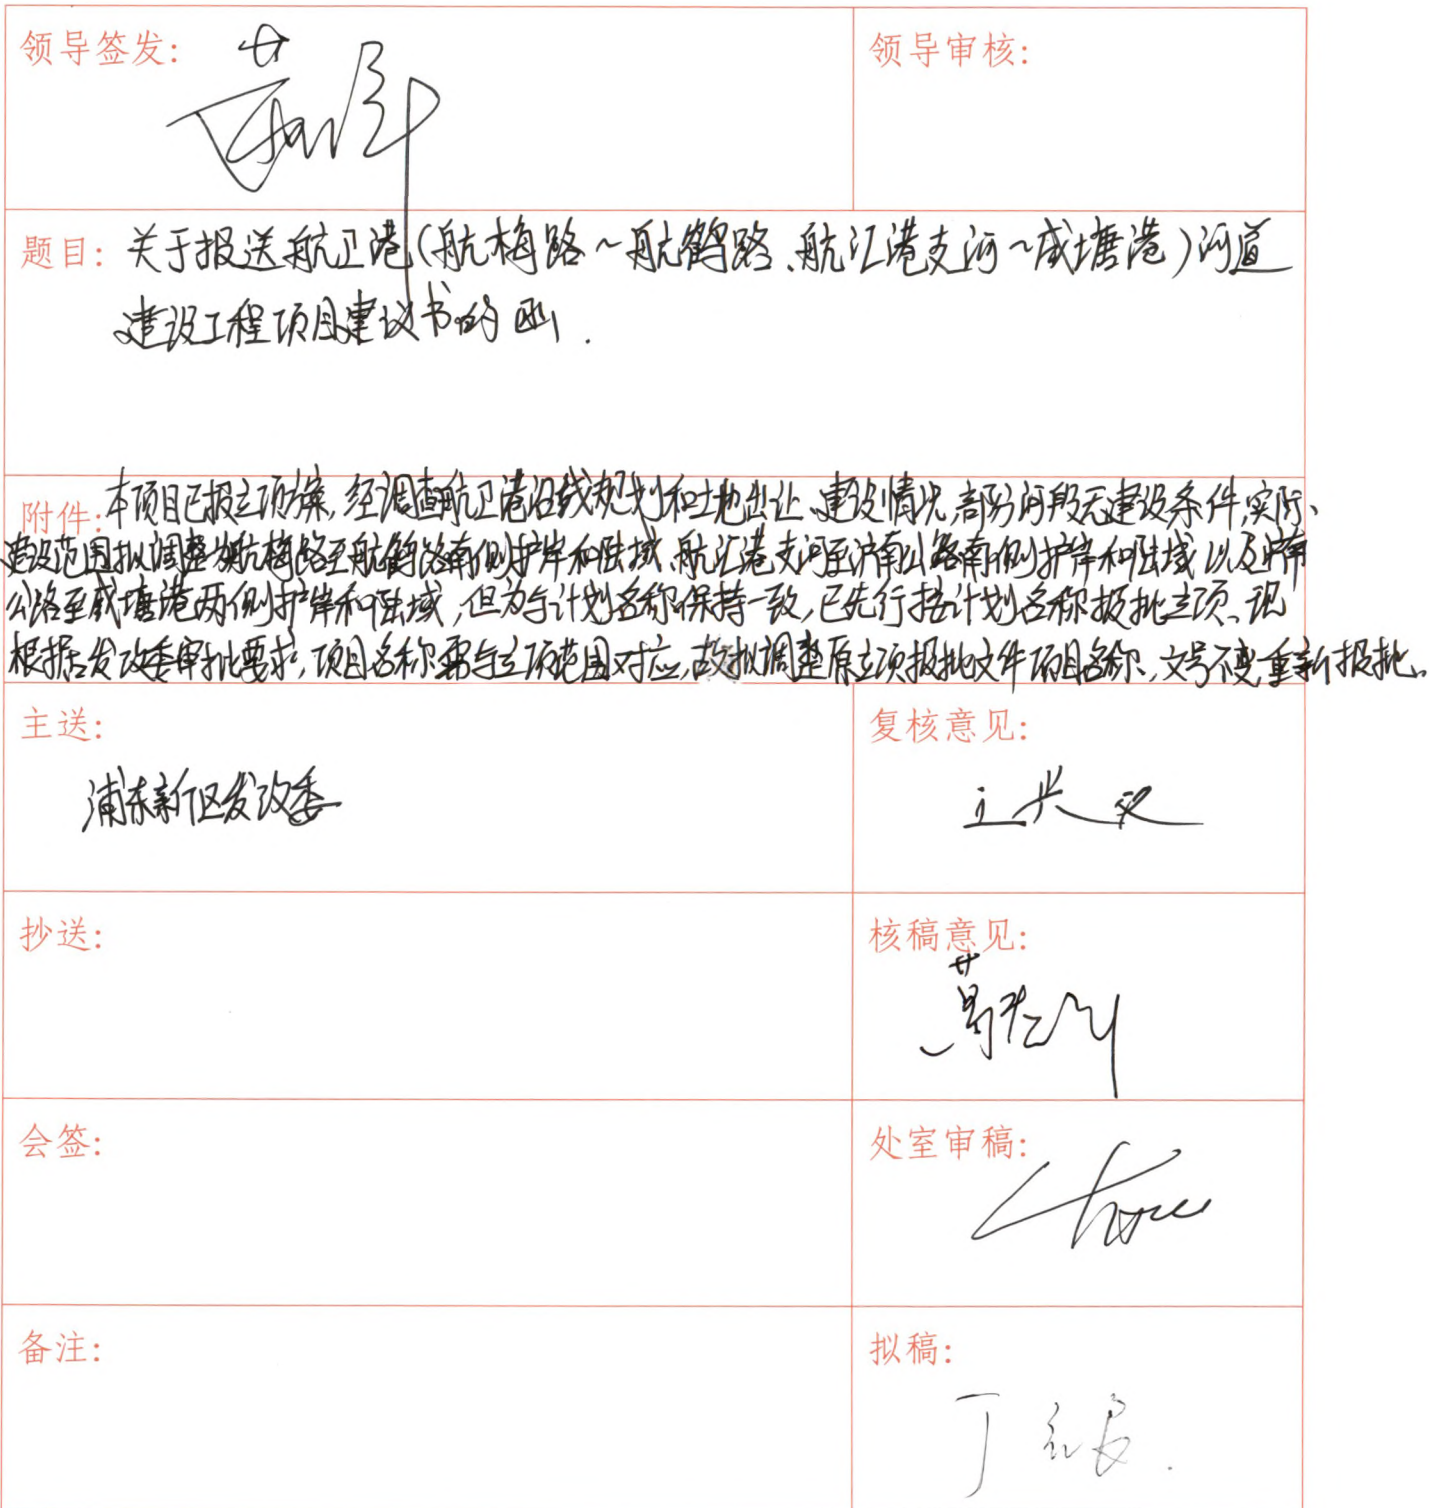 领导签发:
领导审核:
题目: 关于报送航卫港(航梅路~航鹤路、航汇港支河~咸塘港)河道
建设工程项目建议书的函.
附件: 本项目已报立项方案,经调查航卫港沿线规划和土地出让、建设情况,部分河段无建设条件,实际
建设范围拟调整为航梅路至航鹤路南侧护岸和陆域、航汇港支河至沪南公路南侧护岸和陆域以及沪南
公路至咸塘港两侧护岸和陆域,但为与计划名称保持一致,已先行按计划名称报批立项、现
根据发改委审批要求,项目名称需与立项范围对应,故拟调整原立项报批文件项目名称,文号不变,重新报批。
主送:
复核意见:
浦东新区发改委
抄送:
核稿意见:
会签:
处室审稿:
备注:
拟稿: